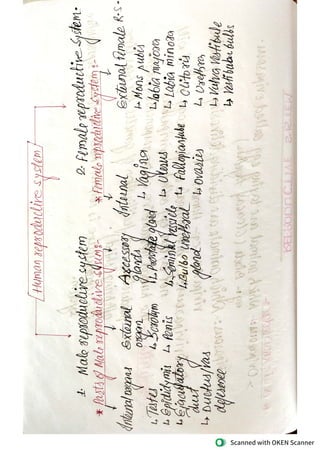 Human reproductive system
1. Male reproductive system
2. Female reproductive system.
* Parts of Male reproductive system:-
* Female reproductive system:-
Internal organs
↳ Testes
↳ Epididymis
↳ Ejaculatory duct
↳ Ductus/vas deference
External organ
↳ Scrotum
↳ Penis
Accessory glands
↳ Prostate gland
↳ Seminal vesicle
↳ Bulbo urethral gland
Internal
↳ Vagina
↳ Uterus
↳ Fallopian tube
↳ ovaries
External Female R.S.
↳ Mons pubis
↳ Labia majora
↳ Labia minora
↳ Clitoris
↳ Urethra
↳ Vulva Vestibule
↳ Vestibular bulbs
Scanned with OKEN Scanner